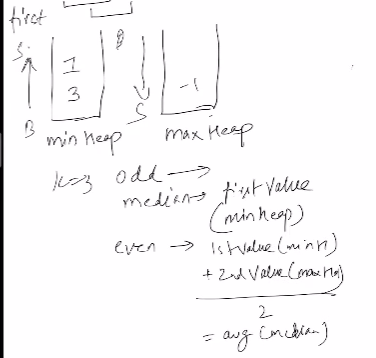 first
S
1
3
-1
B
S
min Heap
max Heap
k=3
odd →
median → first value
(minHeap)
even → 1st value (minH)
+ 2nd value (maxH)
2
= avg (median)